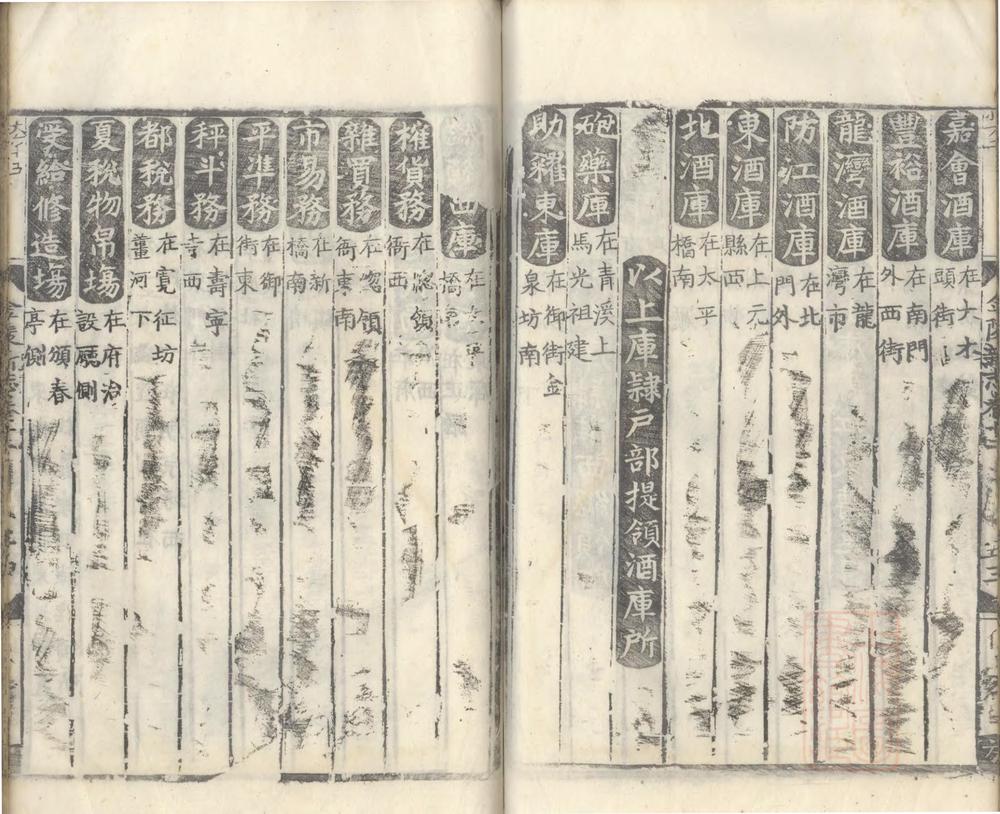 嘉會酒庫在大才頭街
豐裕酒庫在南門外西街
龍灣酒庫在龍灣市
防江酒庫在北門外
東酒庫在上元縣西
北酒庫在太平橋南
以上庫隷戶部提領酒庫所
砲藥庫在青溪上馬光祖建
助糴東庫在御街金泉坊南
西庫在
榷貨務在總領衙西
雜買務在總領衙東南
市易務在新橋南
平準務在御街東
秤斗務在壽寧寺西
都稅務在寬征坊薑河下
夏稅物帛場在府治設廳側
受給修造場在頒春亭側